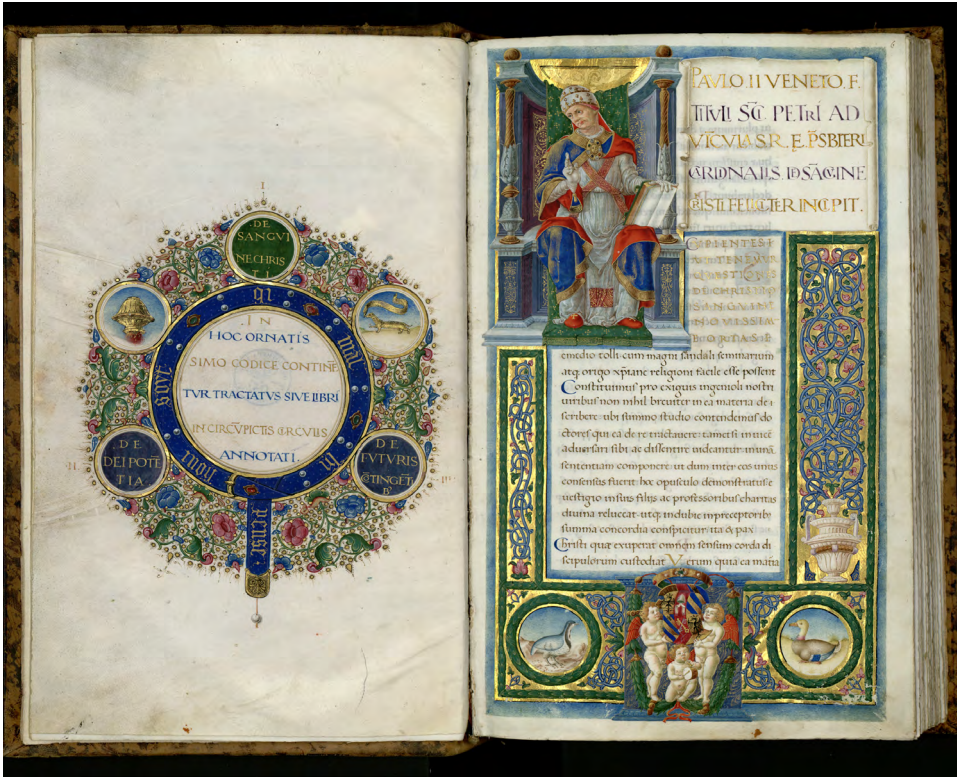 I
DE
SANGVI
NE CHRIS
TI
qi
mal
y
pense
honi
soyt
IN
HOC ORNATIS
SIMO CODICE CONTINĒ
TVR TRACTATVS SIVE LIBRI
IN CIRCV̄PICTIS CIRCVLIS
ANNOTATI.
DE
DEI POTĒ
TIA
II
DE
FVTVRIS
III
6
PAVLO. II VENETO. P.
TITVLI SC̄I PETRI AD
VĪCVLA S. R. E. P̄SBITERI
CARDINALIS
FELICITER INCIPIT.
emedio tolli cum magni scandali seminarium
atq; origo xp̄iane religioni facile esse possent
Constituimus pro exiguis ingenioli nostri
uiribus non nihil breuiter in ea materia de
scribere ubi summo studio contendimus do
ctores qui ea de re tractauere: tametsi inuicē
aduersari sibi ac dissentire uideantur in unā
sententiam componere ut dum inter eos unus
consensus fuerit hoc opusculo demonstratus e
uestigio in suis filijs ac professoribus charitas
diuina reluceat utq; indubie in preceptorib;
summa concordia conspicitur ita & pax
Christi quæ exuperat omnem sensum corda di
scipulorum custodiat Verum quia ea mat̄ia